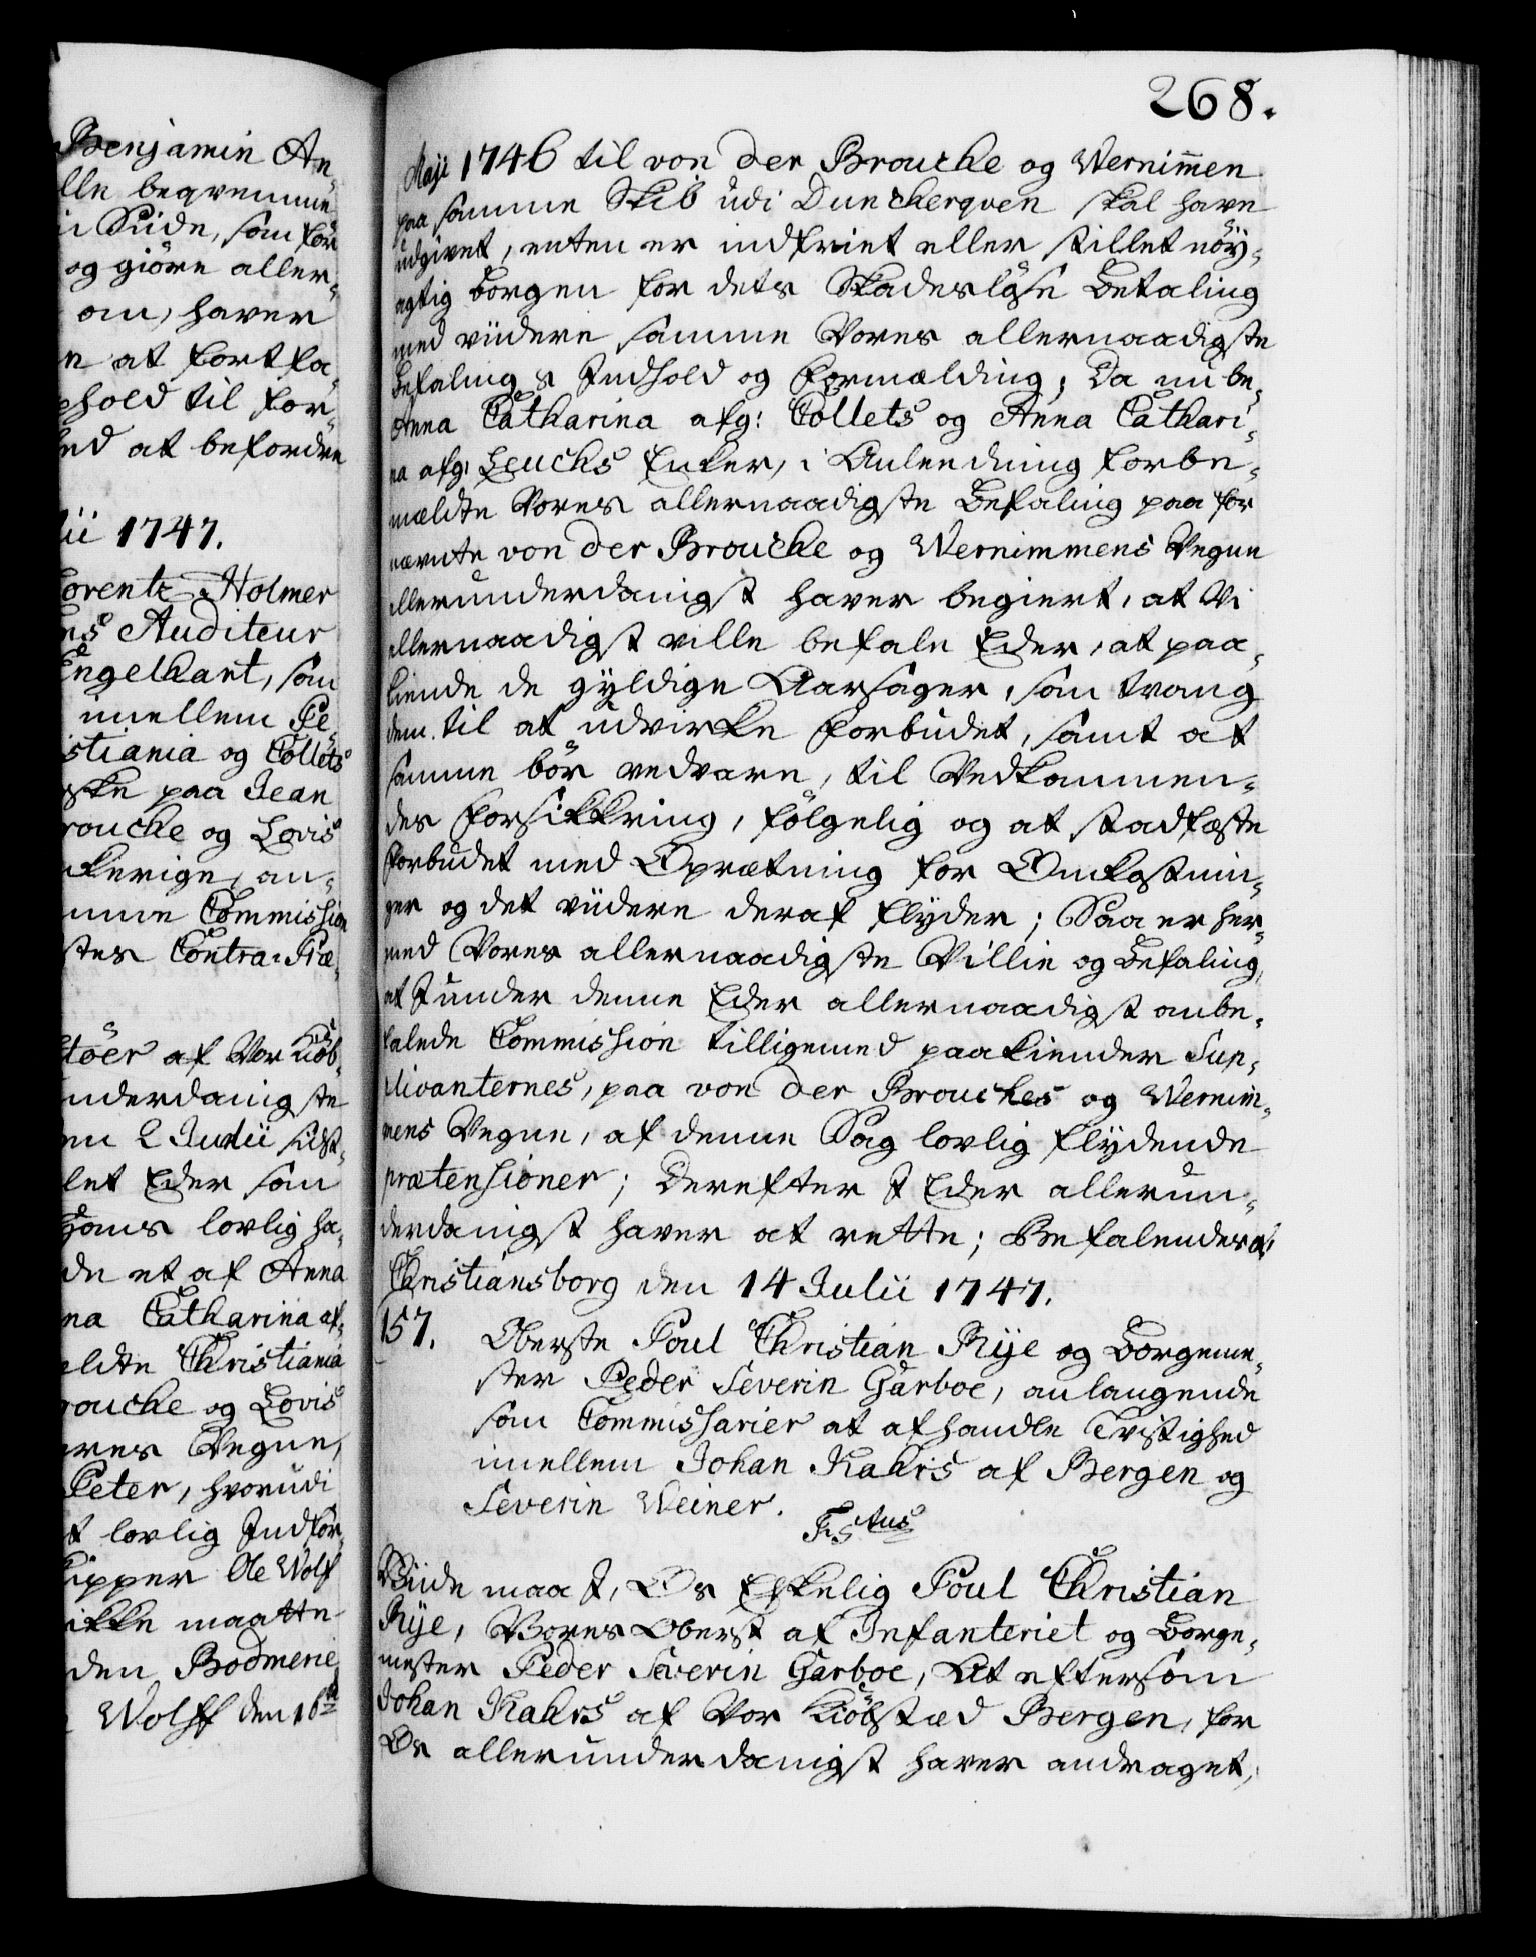 Benjamin An¬
lle beqvemme
i Side, som for
og giöre aller¬
om, haver
e at fortfa¬
hold til for¬
hed at befordre
lii 1747.
Lorentz Holmer
ens Auditeur
Engelhart, som
imellem Pe¬
istiania og Collets
ske paa Jean
rouche og Lovis
nkerige, an¬
mme Commission
stes Contra-Præ¬
töer af Vor Kiöb¬
underdanigste
en 2 Junii sidst¬
let Eder som
Hans lovlig ha¬
de et af Anna
na Catharina af¬
eldte Christiania
rouche og Lovis
eres Vegne,
Peter, hvorudi
t lovlig Indför¬
kipper Ole Wolf
ikke maatte
den Bodmerie
Wolff den 16de
268.
Maji 1746 til von der Brouche og Wernimmen
paa samme Skib udi Dunckerqven skal have
udgivet, enten er indfriet eller stillet nöy¬
agtig borgen for dets Skadeslöse Betaling
med viidere samme Vores allernaadigste
Befalings Indhold og Formælding; Da nu be¬
Anna Catharina afg: Collets og Anna Cathari¬
na afg: Leuchs Enker, i Anleedning forbe¬
mældte Vores allernaadigste Befaling paa for
nævnte von der Brouche og Wernimmens Vegne
allerunderdanigst haver begiert, at Vi
allernaadigst ville befale Eder, at paa¬
kiende de gyldige Aarsager, som tvang
dem til at udvirke Forbudet, samt at
samme bör vedvare, til Vedkommen¬
des Forsikkring, fölgelig og at stadfæste
Forbudet med Opretning for Omkostnin¬
ger og det viidere deraf flyder; Saa er her¬
med Vores allernaadigste Villie og Befaling,
at I under denne Eder allernaadigst anbe¬
falede Commission tilligemed paakiender Sup¬
plicanternes, paa von der Brouches og Wernim¬
mens Vegne, af denne Sag lovlig flydende
prætensioner; Derefter I Eder allerun¬
derdanigst haver at rette; Befalendes etc:
Christiansborg den 14 Julii 1747.
157. Oberste Poul Christian Rije og Borgeme¬
ster Peder Severin Garboe, anlangende
som Commissarier at afhandle Tvistighed
imellem Johan Kahrs af Bergen og
Severin Weiner.
F 5tus
Viide maa I, Os Elskelig Poul Christian
Rije, Vores Oberst af Infanteriet og Borge¬
mester Peder Severin Garboe, At eftersom
Johan Kahrs af Vor Kiöbsted Bergen, for
Os allerunderdanigst haver andraget,